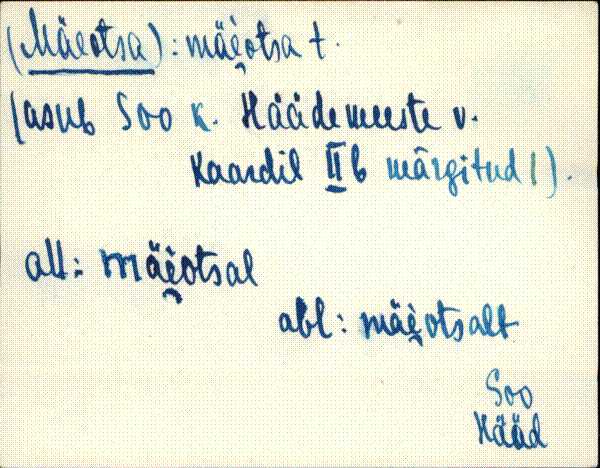 (Mäeotsa): mäe̯otsa t.
(asub Soo k. Häädemeeste v.
Kaardil IIb märgitud 1).
all: mäè̯otsal
abl: mäè̯otsalt
Soo
Hääd